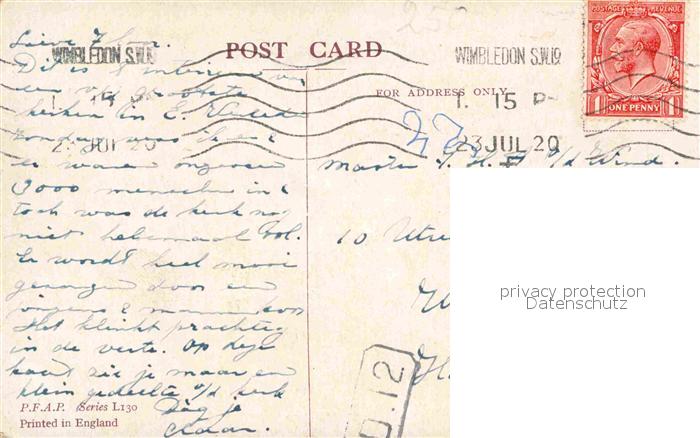 POST CARD
WIMBLEDON S.W.19
WIMBLEDON S.W.19
FOR ADDRESS ONLY
1. 15 P
23 JUL 20
23 JUL 20
POSTAGE REVENUE
1 ONE PENNY 1
Dit is 't interieur van
een v/d grootste
kerken in E. Verleden
Zondag was ik er
er waren ongeveer
3000 menschen in &
toch was de kerk nog
niet helemaal vol.
Er wordt heel mooi
gezongen door een
jongens & mannenkoor
Het klinkt prachtig
in de verte. Op deze
kaart zie je maar een
klein gedeelte v/d kerk
Dag je
Master v/d Wind.
10 Utre
P.F.A.P. Series L130
Printed in England
.12
privacy protection
Datenschutz